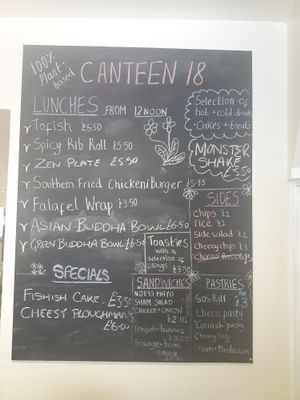 100%
Plant-
based
CANTEEN 18
LUNCHES FROM 12NOON
Tofish £5.50
Spicy Rib Roll £5.50
Zen Plate £5.50
Southern Fried Chicken Burger
Falafel Wrap £3.50
Asian Buddha Bowl £6.50
Green Buddha Bowl £6.50
SPECIALS
Fishish Cake. £3.50
Cheesy Ploughmans
£6.00
Toasties
with a
selection of
fillings
£3.50
SANDWICHES
NO EGG MAYO
SHAM SALAD
CHEEZE + ONION
£2.10
Tempeh + hummus
Selection of
hot + cold drinks
• Cakes + treats
MONSTER
SHAKE
£5.50
SIDES
Chips £2
rice £2
side salad £2
cheesy chips £3
PASTRIES
Sos Roll
£3
Cheese pasty
Cornish pasty